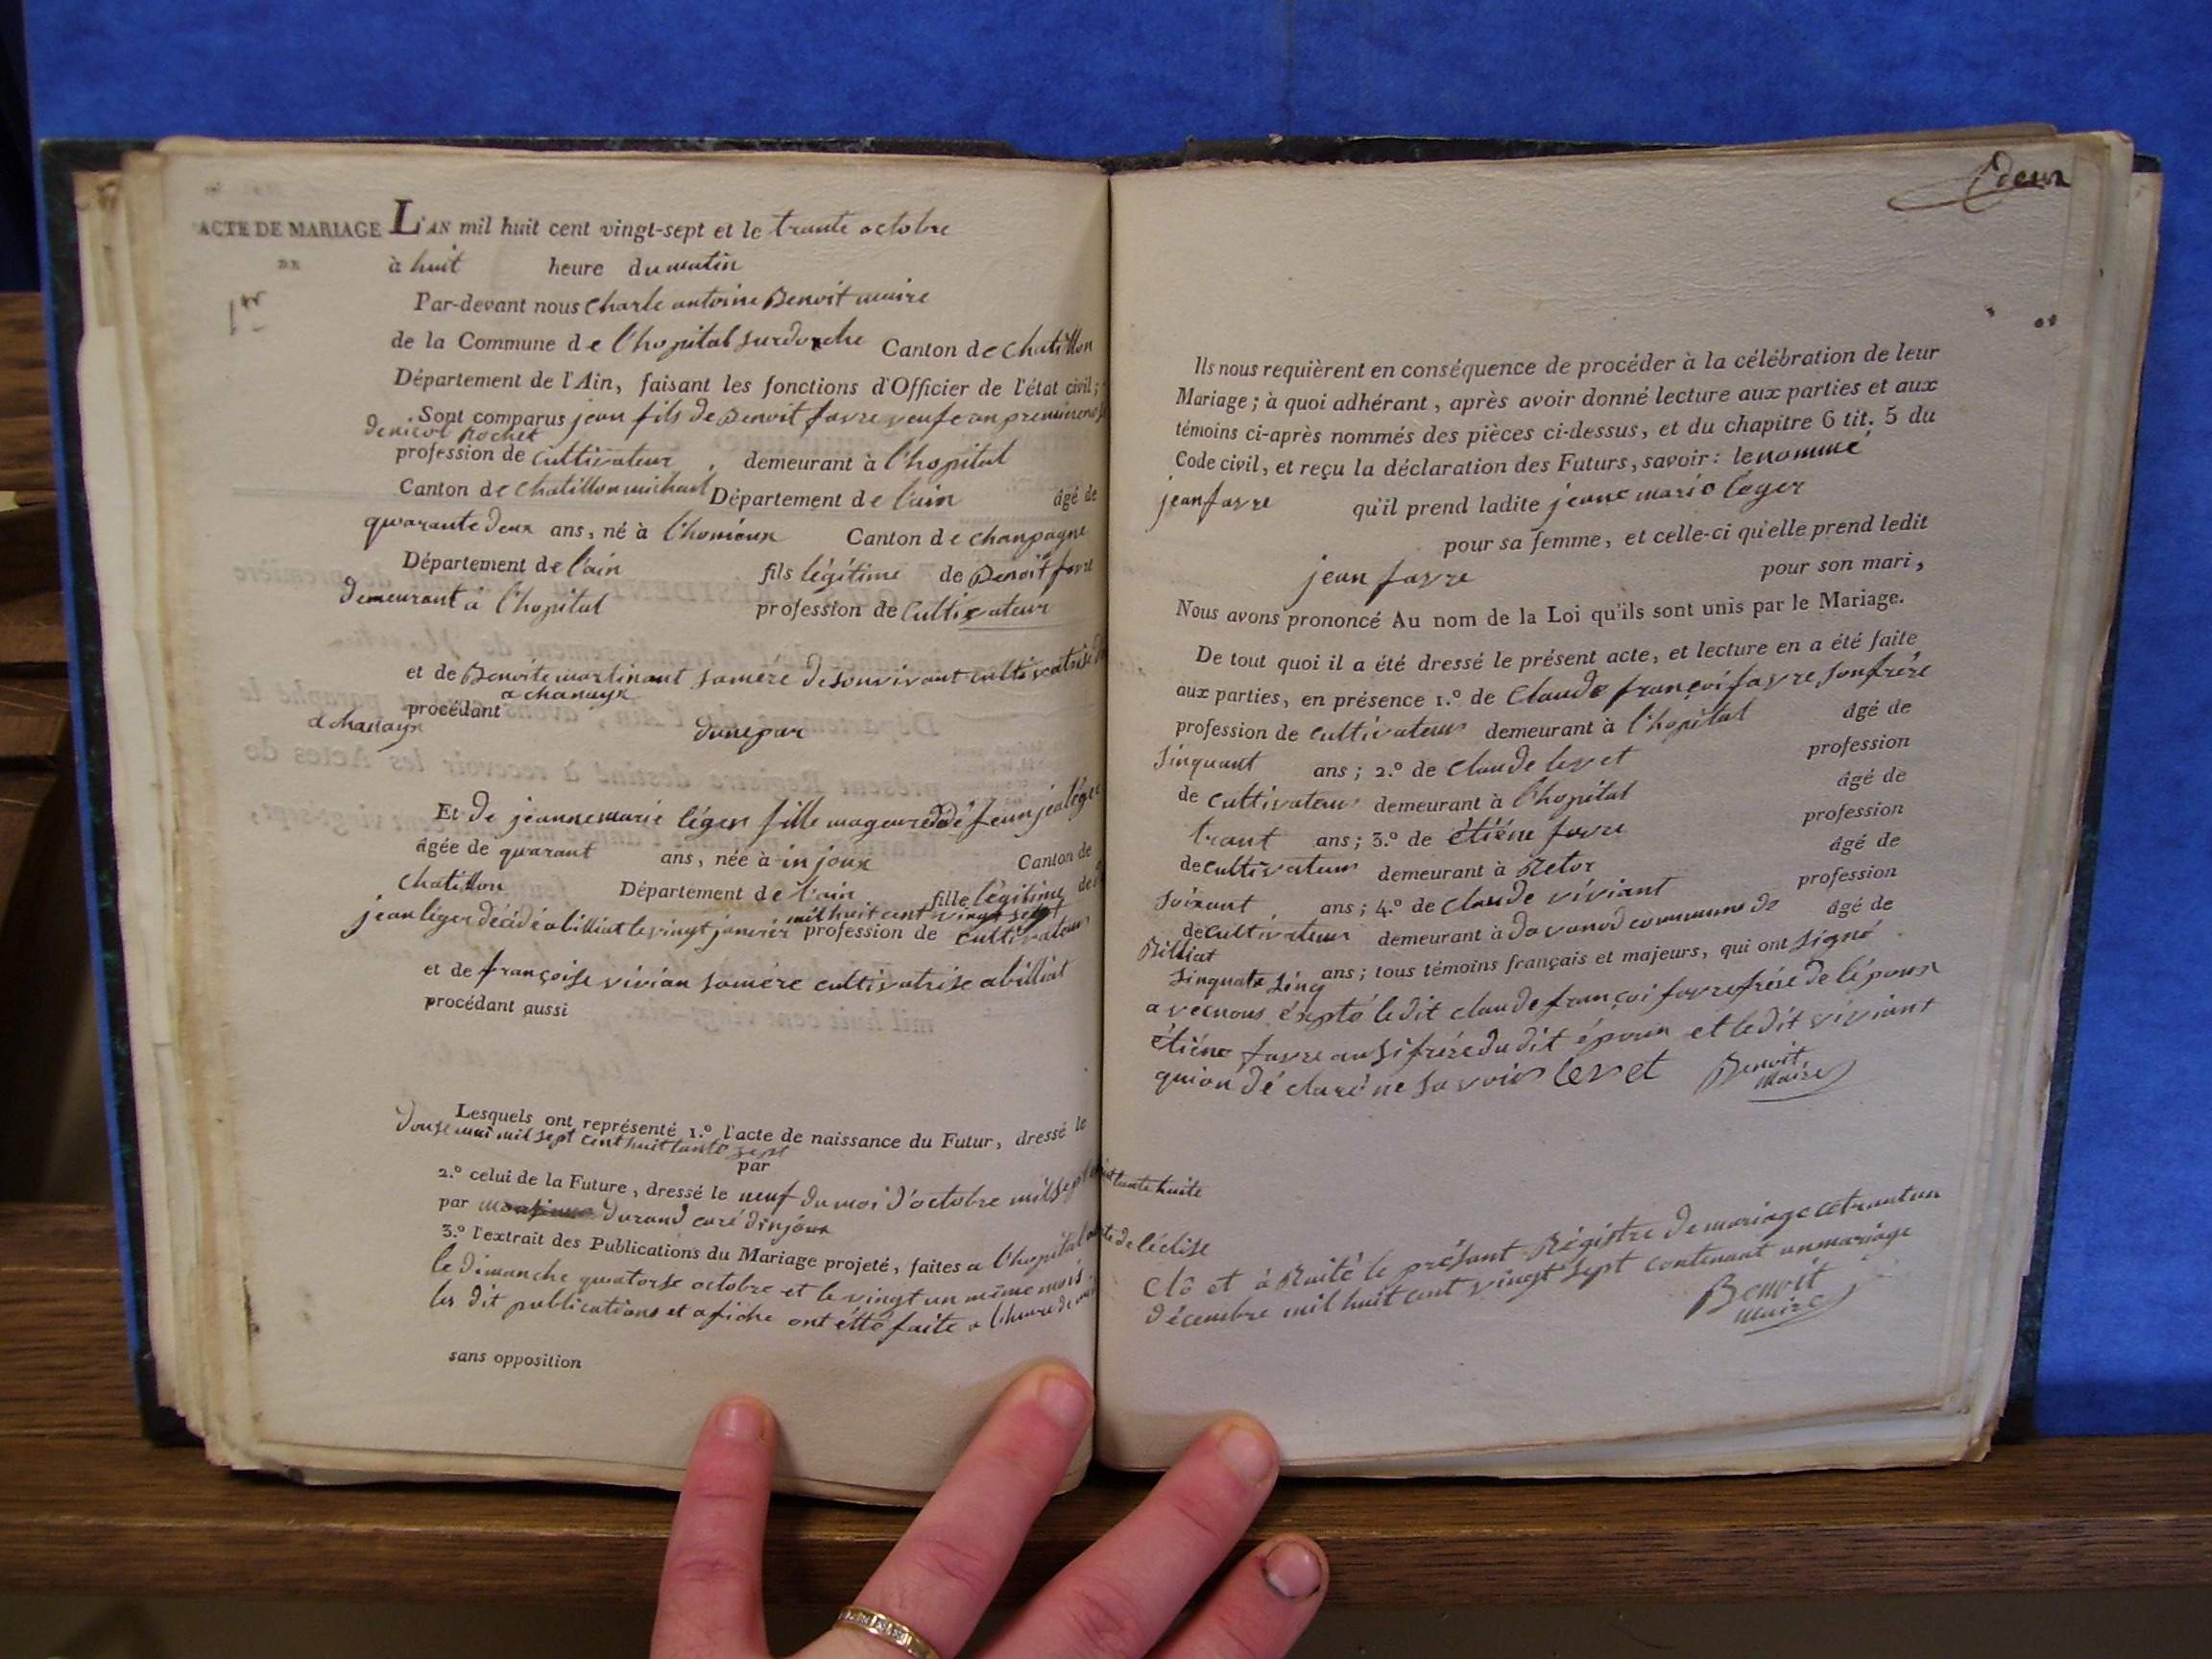 ACTE DE MARIAGE L'AN mil huit cent vingt-sept et le trante octobre
DE à huit heure du matin
1er
Par-devant nous Charle antoine Benoit maire
de la Commune de l'hopital surdorche Canton de chatillon
Département de l'Ain, faisant les fonctions d'Officier de l'état civil;
Sont comparus jean fils de Benoit favre veufe an premiere
de nicol Rochet
profession de cultivateur demeurant à l'hopital
Canton de chatillon michail Département de l'ain âgé de
quarante deux ans, né à l'honioux Canton de chanpagne
Département de l'ain fils légitime de Benoit favre
demeurant à l'hopital profession de Cultivateur
et de Benoite martinant sa mére de son vivant cultivatrise
a chanayx
procédant
a chanayx d'une par
Et de jeanne marie léger fille mageure de défeun jea léger
âgée de quarant ans, née à injoux Canton de
chatillon Département de l'ain fille légitime de
jean léger décédé a billiat le vingt janvier mil huit cent vingt sept profession de cultivateur
et de françoise vivian sa mére cultivatrise a billiat
procédant aussi
Lesquels ont représenté 1.º l'acte de naissance du Futur, dressé le
douse mai mil sept cent huittante sept
par
2.º celui de la Future, dressé le neuf du moi d'octobre mil sept cent huittante huite
par durand curé d'injoux
3.º l'extrait des Publications du Mariage projeté, faites a l'hopital porte de l'éclise
le dimanche quatorse octobre et le vingt un même mois
les dit publications et afiche ont étté faite a l'heure de midi
sans opposition
deux
Ils nous requièrent en conséquence de procéder à la célébration de leur
Mariage; à quoi adhérant, après avoir donné lecture aux parties et aux
témoins ci-après nommés des pièces ci-dessus, et du chapitre 6 tit. 5 du
Code civil, et reçu la déclaration des Futurs, savoir: le nommé
jean favre qu'il prend ladite jeane marie léger
pour sa femme, et celle-ci qu'elle prend ledit
jean favre pour son mari,
Nous avons prononcé Au nom de la Loi qu'ils sont unis par le Mariage.
De tout quoi il a été dressé le présent acte, et lecture en a été faite
aux parties, en présence 1.º de Claude françoi favre son frére
profession de cultivateur demeurant à l'hopital âgé de
sinquant ans; 2.º de Claude levet profession
de cultivateur demeurant à l'hopital âgé de
trant ans; 3.º de étiéne favre profession
de cultivateur demeurant à Retor âgé de
soixant ans; 4.º de claude viviant profession
de cultivateur demeurant à davanod commune de âgé de
Billiat
sinquate sinq ans; tous témoins français et majeurs, qui ont signé
avec nous éxepté le dit claude françoi favre frére de l'époux
étiéne favre ausi frére du dit époux et le dit viviant
qui on déclaré ne savoir levet Benoit
maire
Clô et àRaité le présant Régistre de mariage ce trant un
décembre mil huit cent vingt sept contenant un mariage
Benoit
maire